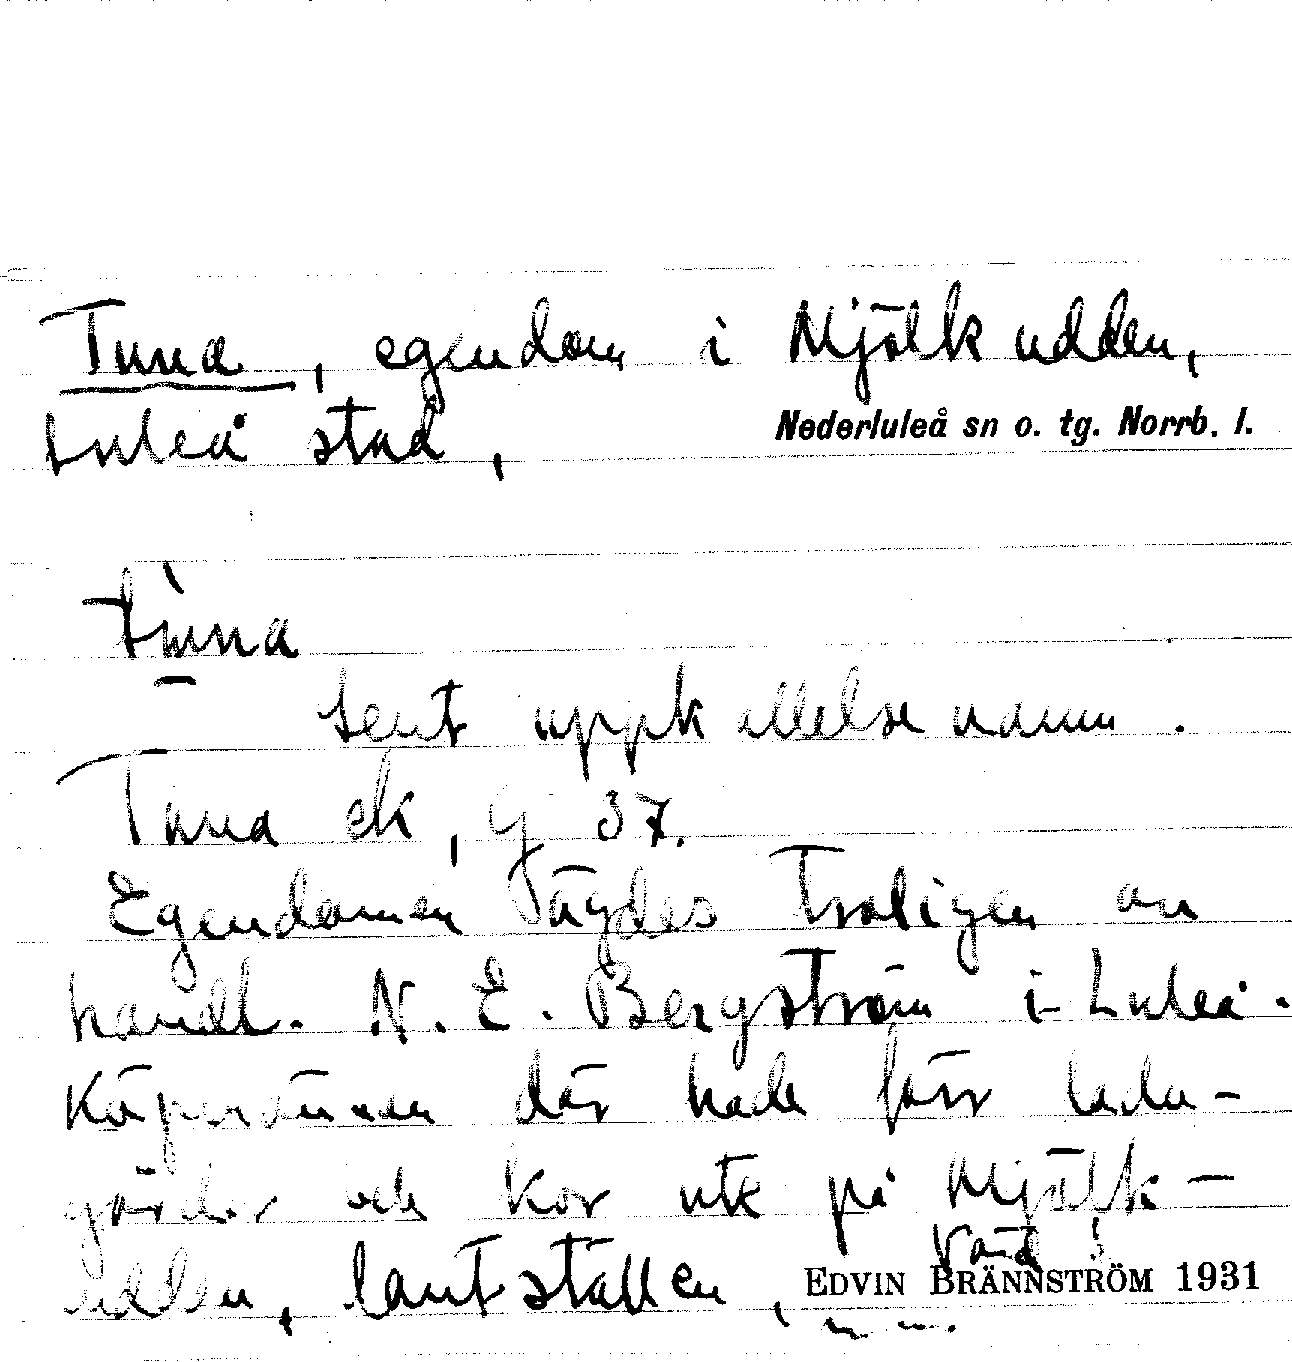 Tuna, egendom i Mjölkudden,
Luleå stad,
Nederluleå sn o. tg. Norrb. l.
tuna
Sent uppkallelsenamn.
Tuna ek, g 37.
Egendomen ägdes troligen av
handl. N. E. Bergström i Luleå.
Köpmännen där hade förr ladu-
gårdar och kor ute på Mjölk-
udden, lantställen,
EDVIN BRÄNNSTRÖM 1931